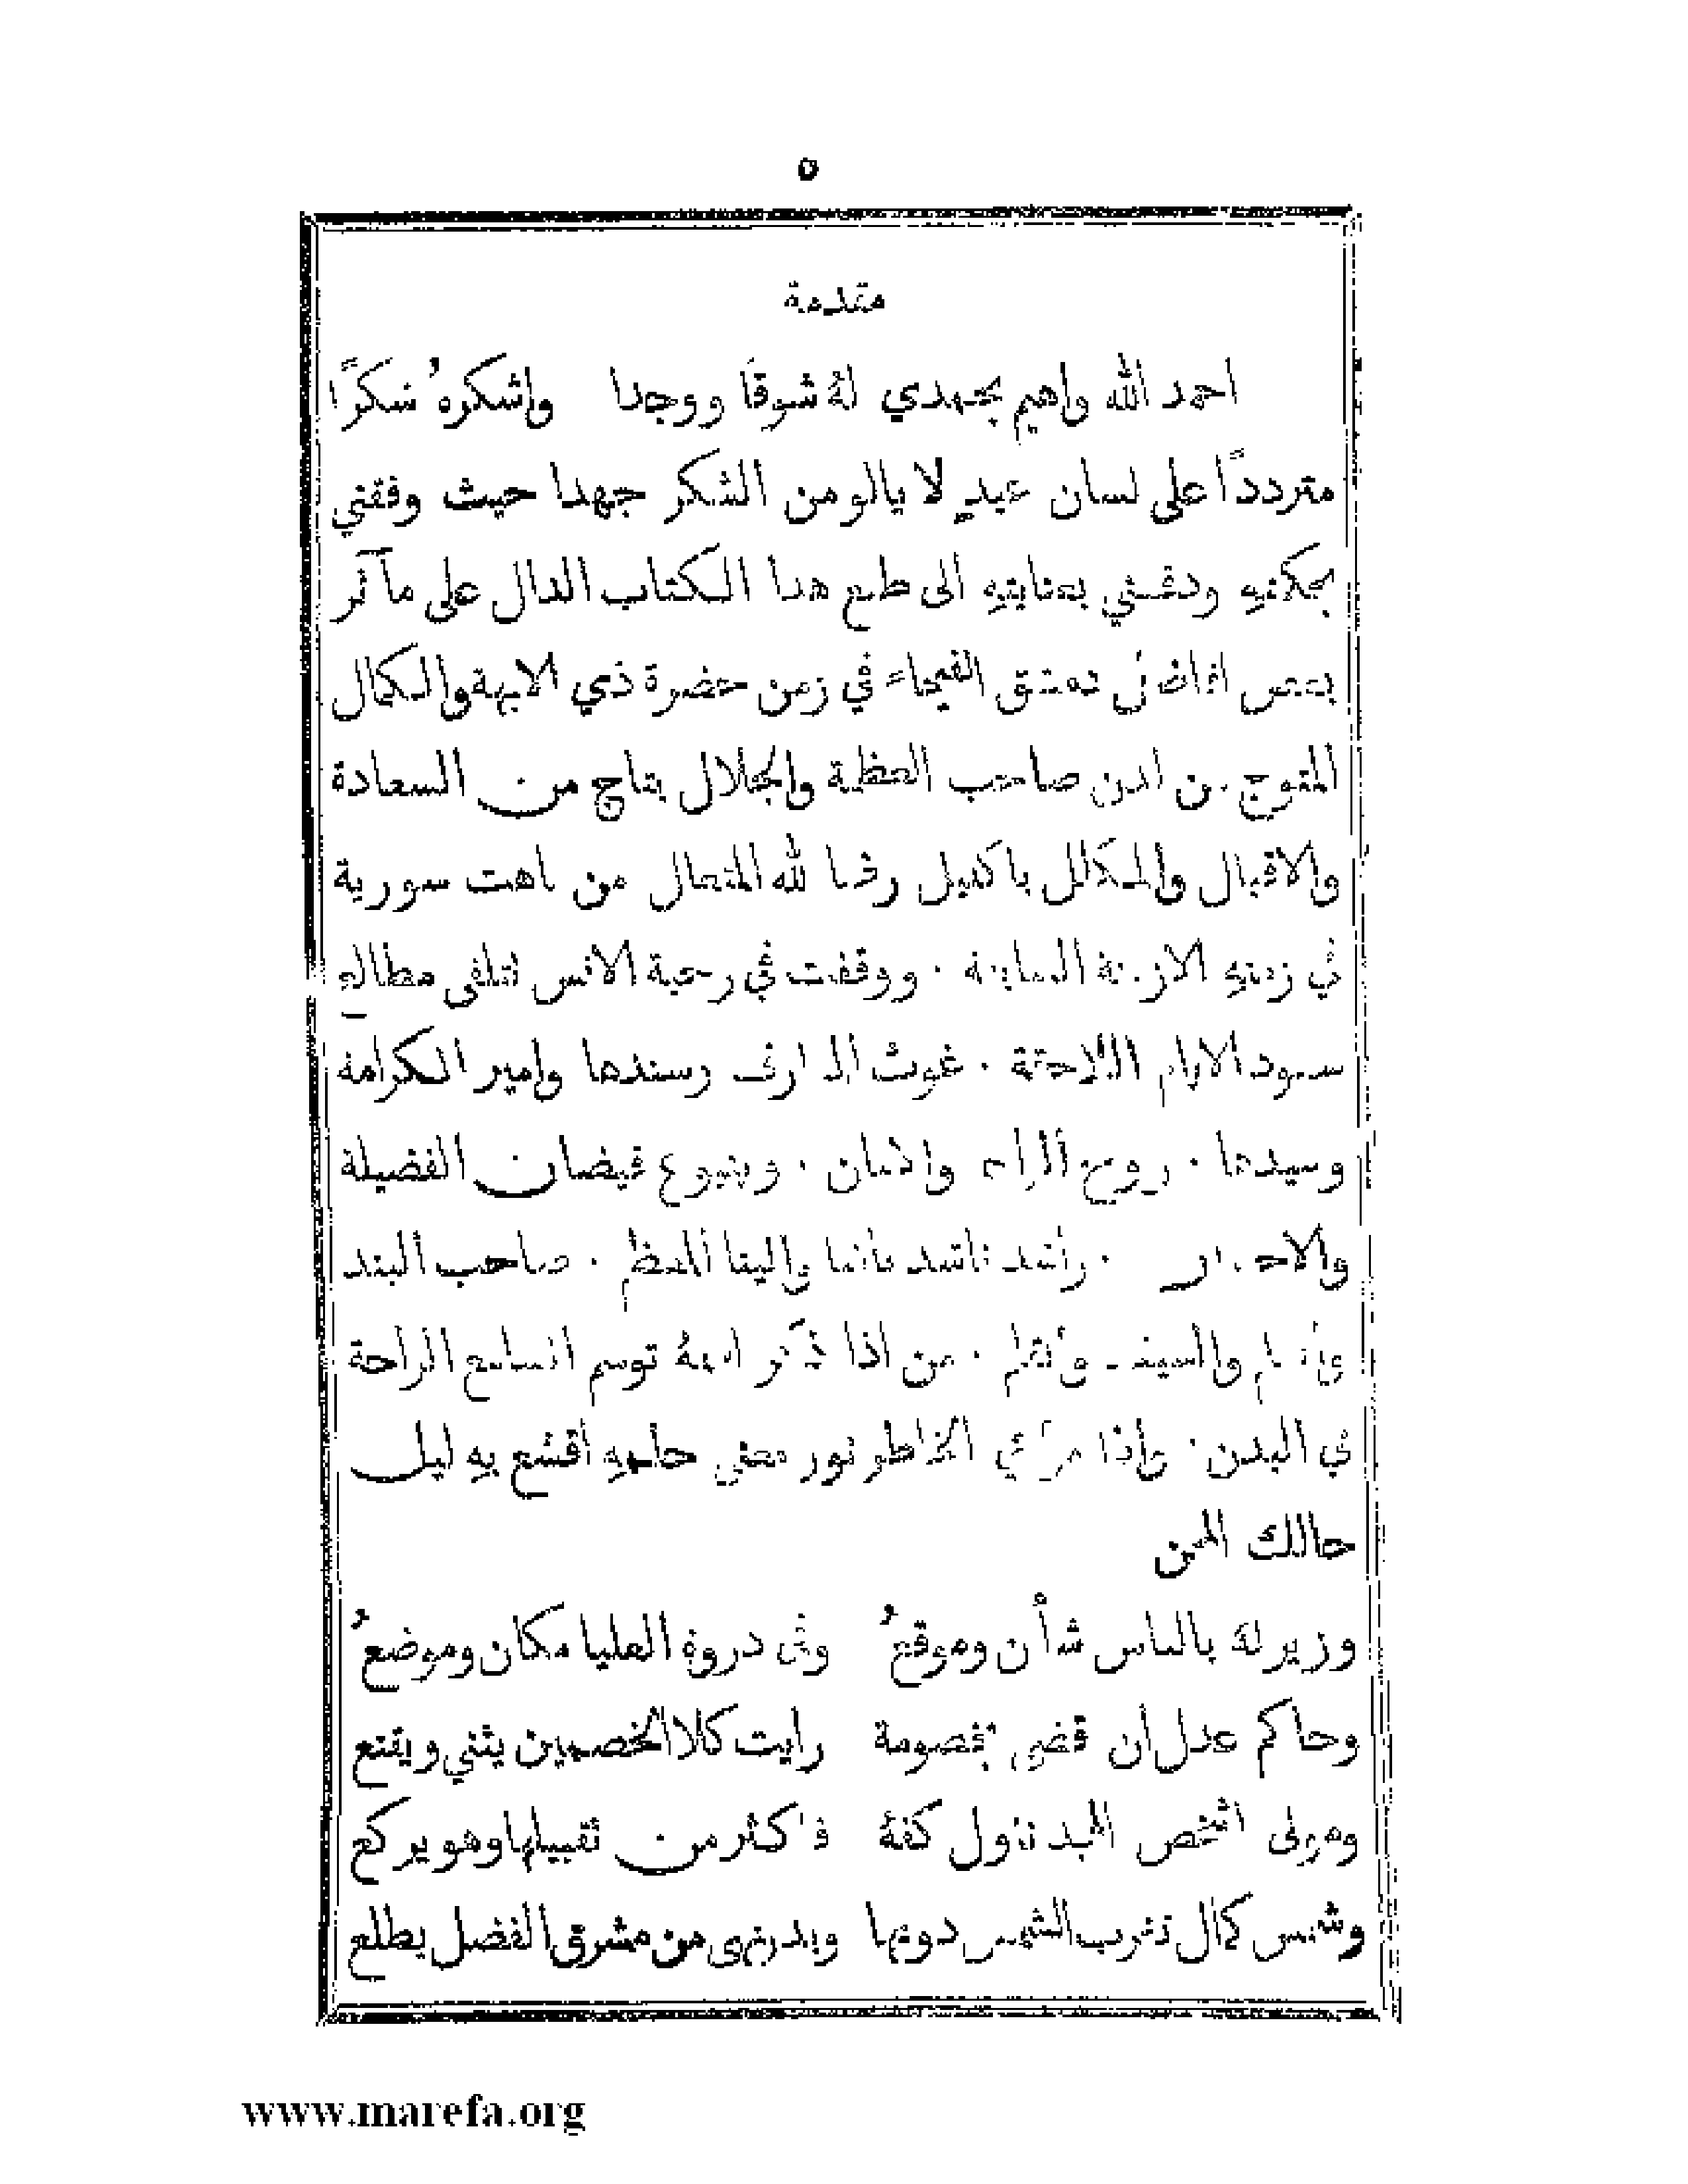 ٥
مقدمة
احمد الله واهيم بجهدي لهُ شوقًا ووجدا واشكرهُ شكرًا
مترددًا على لسان عبدٍ لا يالو من الشكر جهدا حيث وفقني
بحكمتهِ ودفعني بعنايتهِ الى طبع هذا الكتاب الدال على مآثر
بعض افاضل دمشق الفيحاء في زمن حضرة ذي الابهة والكمال
المتوج من لدن صاحب العظمة والجلال بتاج من السعادة
والاقبال والمكلل باكليل رضا لله المتعال من باهت سورية
في زمنهِ الازمنة السابقة . ووقفت في رحبة الانس لتلقى مطالع
سعود الايام اللاحقة . غوث المعارف وسندها وامير الكرامة
وسيدها . روح والامان . وينبوع فيضان الفضيلة
والاحسان . راشد ناشد باشا والينا المعظم . صاحب البند
والعلم والسيف والقلم . من اذا ذكر اسمهُ توسم السامع الراحة
في البدن . واذا الخاطر نور معنى حلمهِ اقشع بهِ ليل
حالك المحن
وزير لهُ بالناس شأن وموقعُ وفى دروة العليا مكان وموضعُ
وحاكم عدل ان قضى بخصومة رايت كلا الخصمين يثني ويقنع
ومولى المجد ناول كفهُ فاكثر من تقبيلها وهو يركع
وشمس كمال تغرب الشمس دونها وبدر نهى من مشرق الفضل يطلع
www.marefa.org